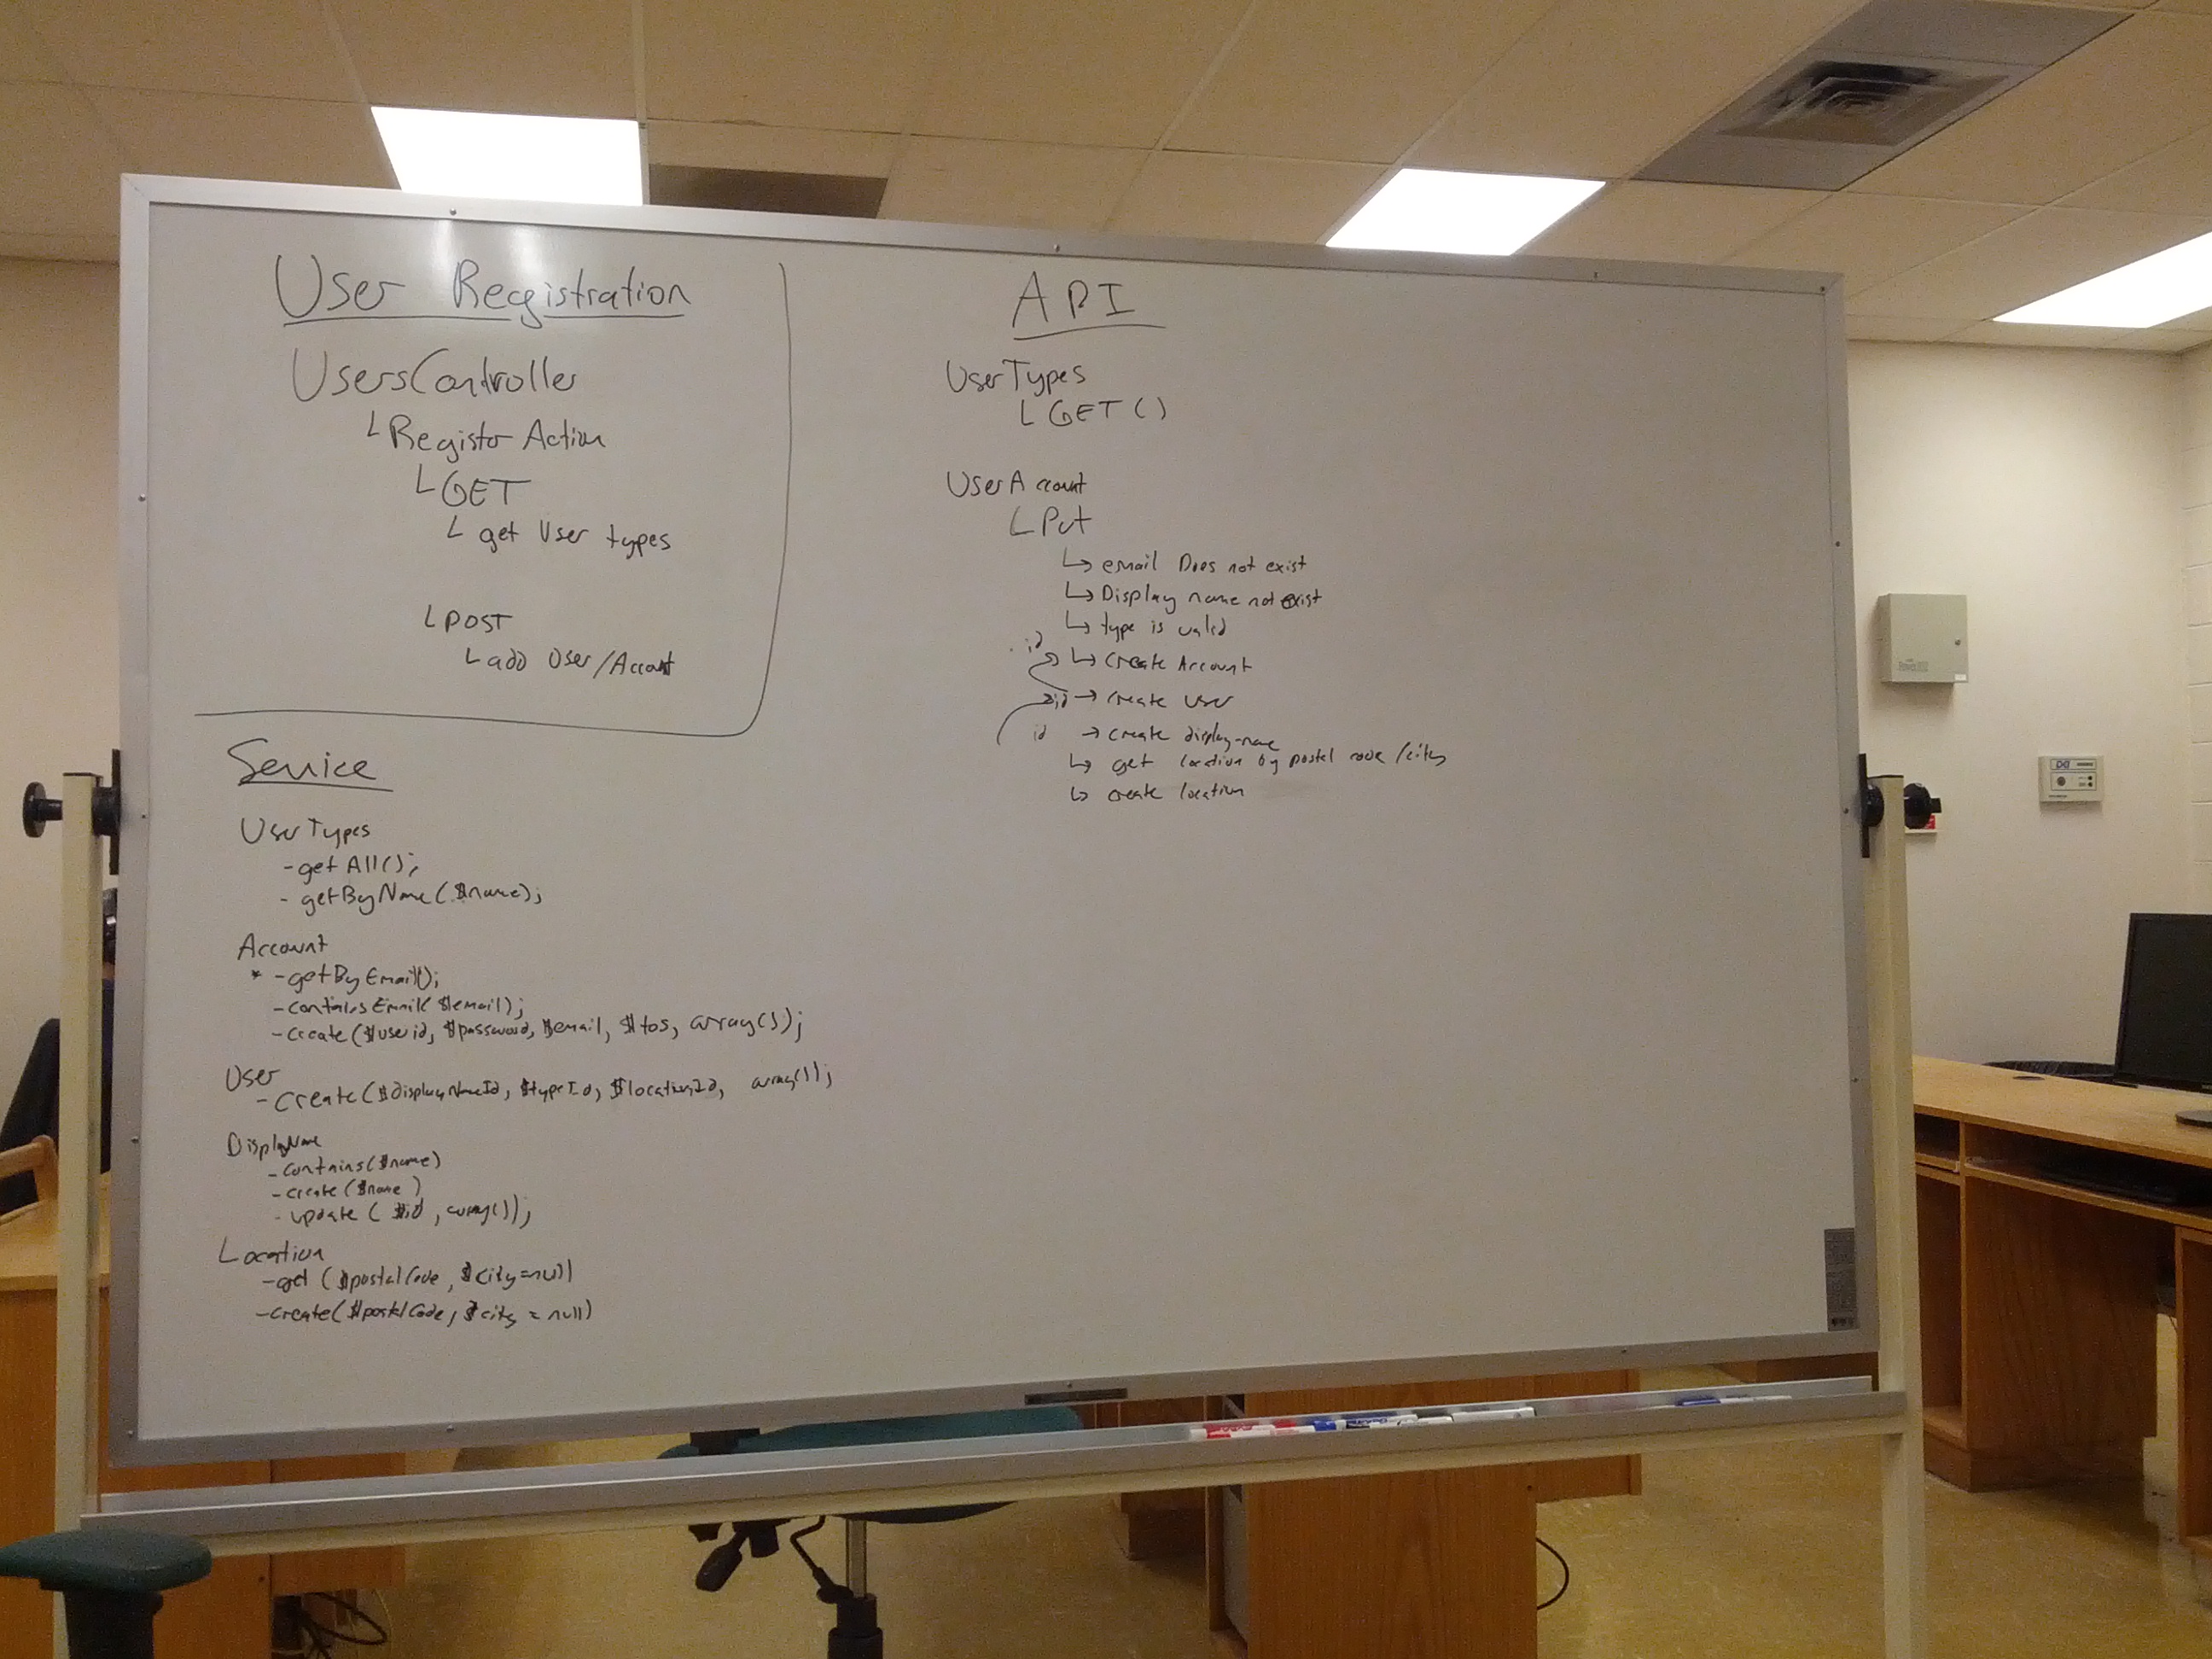 User Registration
UsersController
Register Action
GET
get User types
POST
add User/Account
Service
UserTypes
- getAll();
- getByName($name);
Account
* - getByEmail();
- containsEmail($email);
- create($userid, $password, $email, $tos, array());
User
- create($displayNameId, $typeId, $locationId, array());
DisplayName
- contains($name)
- create($name)
- update ($id, array());
Location
- get ($postalCode, $city=null)
- create($postalCode, $city = null)
API
UserTypes
GET()
UserAccount
Put
↳ email Does not exist
↳ Display name not exist
↳ type is valid
id ↳ create Account
id → create user
id → create display-name
↳ get location by postal code /city
↳ create location